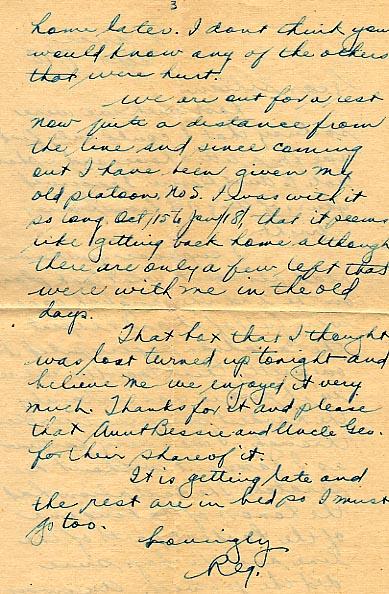 3
home later. I dont think you
would know any of the others
that were hurt.
We are out for a rest
now quite a distance from
the line and since coming
out I have been given my
old platoon, No 5. I was with it
so long, Oct/15 to Jan/18, that it seems
like getting back home although
there are only a few left that
were with me in the old
days.
That box that I thought
was lost turned up tonight and
believe me we enjoyed it very
much. Thanks for it and please
that Aunt Bessie and Uncle Geo.
for their share of it.
It is getting late and
the rest are in bed so I must
go too.
Lovingly
Reg.